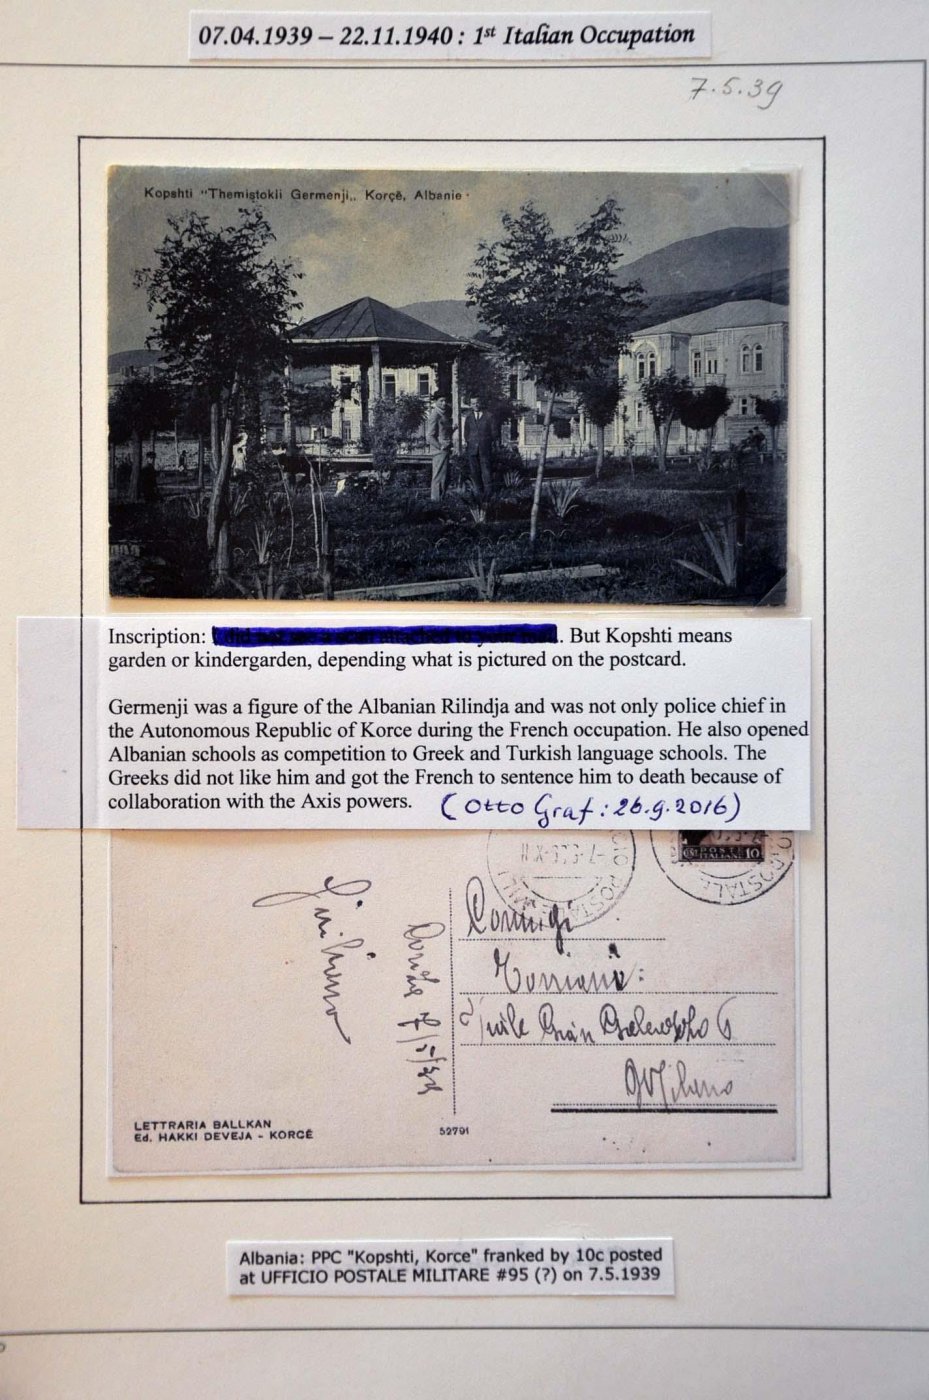 07.04.1939 – 22.11.1940 : 1st Italian Occupation
7.5.39
Kopshti "Themistokli Germenji„ Korçë, Albanie
Inscription: . But Kopshti means
garden or kindergarden, depending what is pictured on the postcard.
Germenji was a figure of the Albanian Rilindja and was not only police chief in
the Autonomous Republic of Korce during the French occupation. He also opened
Albanian schools as competition to Greek and Turkish language schools. The
Greeks did not like him and got the French to sentence him to death because of
collaboration with the Axis powers. (Otto Graf: 26.9.2016)
POSTE
ITALIANE 10
Milano
LETTRARIA BALLKAN
Ed. HAKKI DEVEJA - KORCË
52791
Albania: PPC "Kopshti, Korce" franked by 10c posted
at UFFICIO POSTALE MILITARE #95 (?) on 7.5.1939